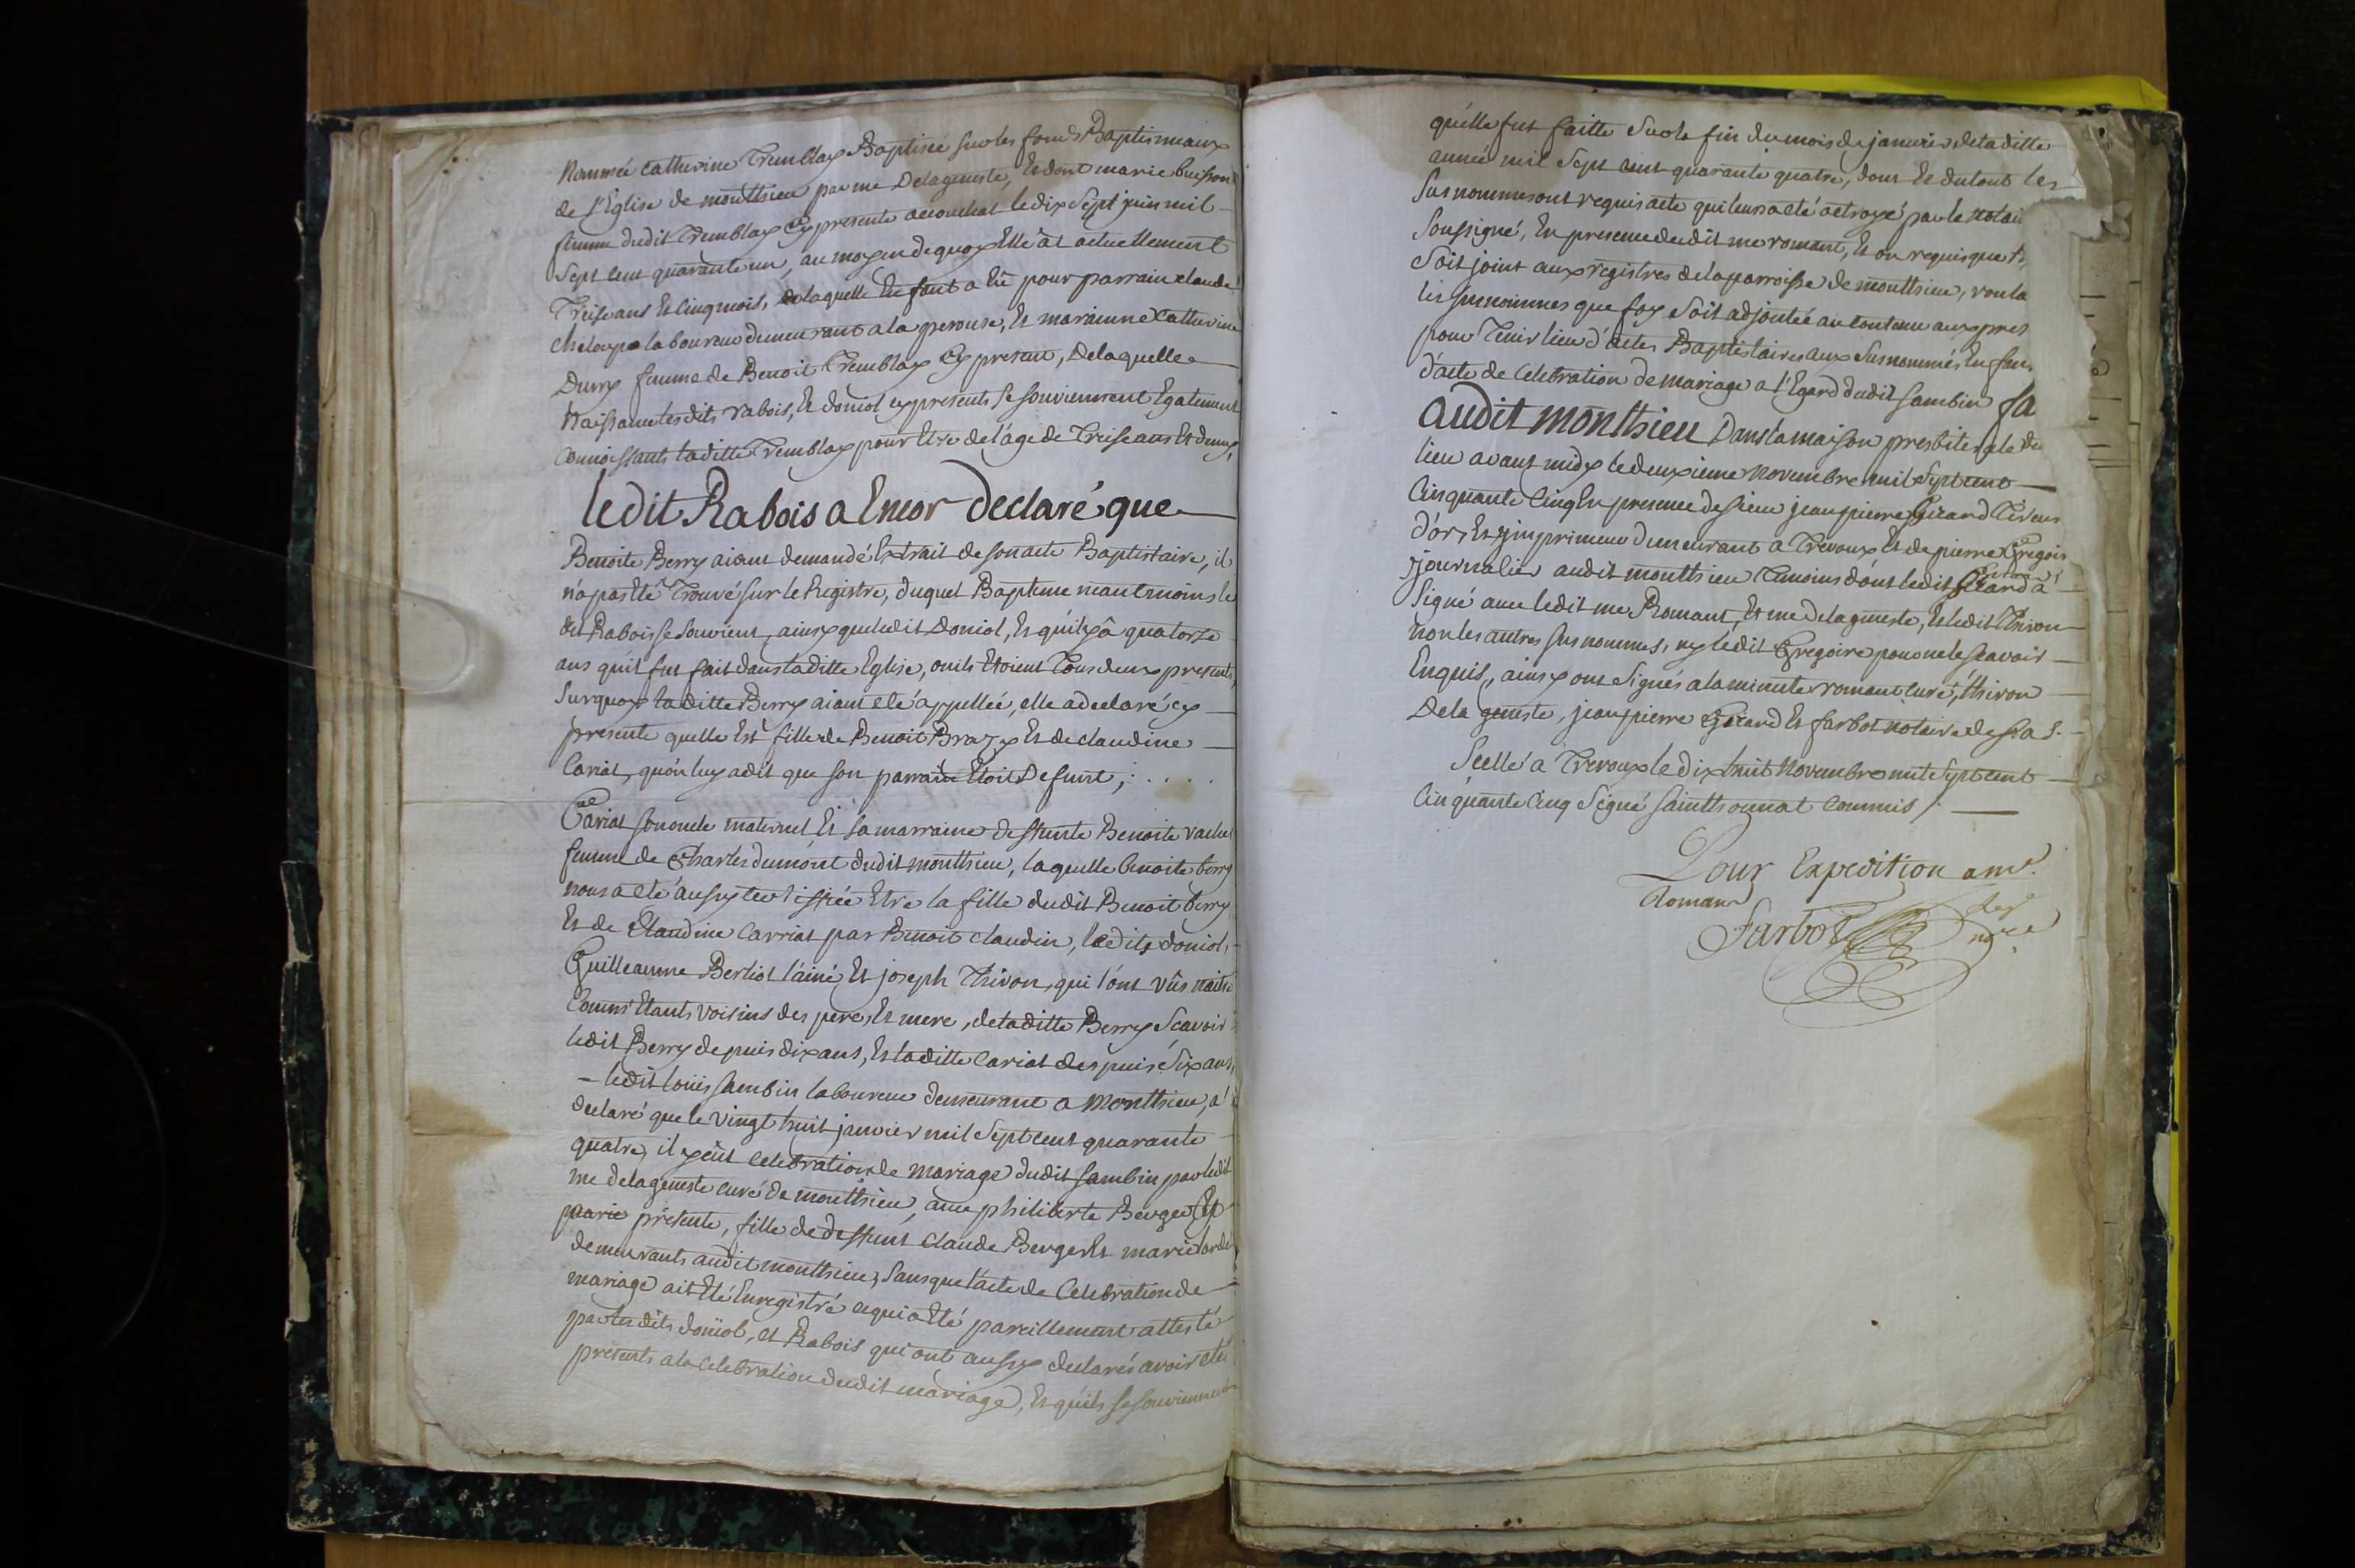 Nommée Catherine Tremblay Baptisée sur les fonds Baptismaux
de l'Eglise de monthieu par me Delageneste, Et dont marie buisson
femme dudit Tremblay Cy presente accouchat le dix Sept juin mil
Sept Cent quarante un, au moyen de quoy Elle at actuellement
Treise ans Et Cinq mois, de laquelle Enfant a Eté pour parrain claude
laboureur demeurant a la perouse, Et marainne Catherine
Durry femme de Benoit Tremblay Cy present, De laquelle
Naissance lesdits rabois, Et doniol cy presents Se souviennent Egalement
Connoissants laditte Tremblay pour Etre de l'age de Treise ans Et demy,
ledit Rabois a Encor declaré que
Benoite Berry aiant demandé Extrait de son acte Baptistaire, il
n'a pas Eté Trouvé sur le Registre, duquel Bapteme neantmoins le
dit Rabois se Souvient, ainsy que ledit Doniol, Et qu'il y â quatorze
ans qu'il fut fait dans laditte Eglise, ou ils Etoient Tous deux presents,
Surquoy laditte Berry aiant eté appellée, elle a declaré cy
presente quelle Est fille de Benoit Et de claudine
Cariat, qu'on luy a dit que son parrain Etoit Defunt,
Cariat son oncle maternel Et sa marraine deffunte Benoite
femme de Charles dumoret dudit monthieu, laquelle Benoite berry
nous a eté aussy certiffiée Etre la fille dudit Benoit berry
Et de Claudine Carriat par Benoit claudin, ledit doniol,
Guilleaume Berliot l'ainé Et joseph Thivon, qui l'ont vûs naitre
Comm' Etants voisins des pere, Et mere, de laditte Berry Scavoir
ledit Berry depuis dix ans, Et laditte Cariat despuis Six ans,
- ledit louis Sambin laboureur demeurant a Monthieu, a
declaré que le vingt huit janvier mil Sept cent quarante
quatre, il y eût Celebration de mariage dudit Sambin par ledit
me delageneste curé de monthieu, avec philiberte Berger Cy
presente, fille de deffunt claude Berger Et marie
demeurants audit monthieu, Sans que l'acte de Celebration de
mariage ait Eté Enregistré ce qui a Eté pareillement attesté
par lesdits doniol, et Rabois qui ont aussy declarés avoir eté
présents a la Celebration dudit mariage, Et qu'ils se souviennent
qu'elle fut faitte Sur la fin du mois de janvier de laditte
année mil Sept cent quarante quatre, dont Et du tout les
Sus nommes ont requis acte qui leurs a eté octroyé par le notai
Soussigné, En presence dudit me romant, Et on requis que
Soit joint aux registres de la parroisse de monthieu,
les surnommes que foy Soit adjoutée au contenu aux pres
pour Tenir lieu d'actes Baptistaires aux Susnommés Enfans
d'acte de Celebration de mariage a l'Egard dudit Sambin fa
audit monthieu Dans la maison presbiterale du
lieu avant midy le deuxieme Novembre mil Sept cent
Cinquante Cinq En presence de sieur jean pierre Gicard Tireur
d'or, Et Imprimeur demeurant a Trevoux Et de pierre Gregoir
journalier audit monthieu Temoins dont ledit Gicard a
Signé avec ledit me Romant, Et me delageneste, Et ledit Thivon
non les autres sus nommes, ny ledit Gregoire pour ne le scavoir
Enquis, ainsy ont Signés a la minutte romant curé, thivon
De la geneste, jean pierre Gicard Et farbot notaire de S. A. S.
Scellé a Trevoux le dix huit Novembre mil Sept cent
Cinquante Cinq Signé commis /.
Pour Expedition
Romans
Farbot